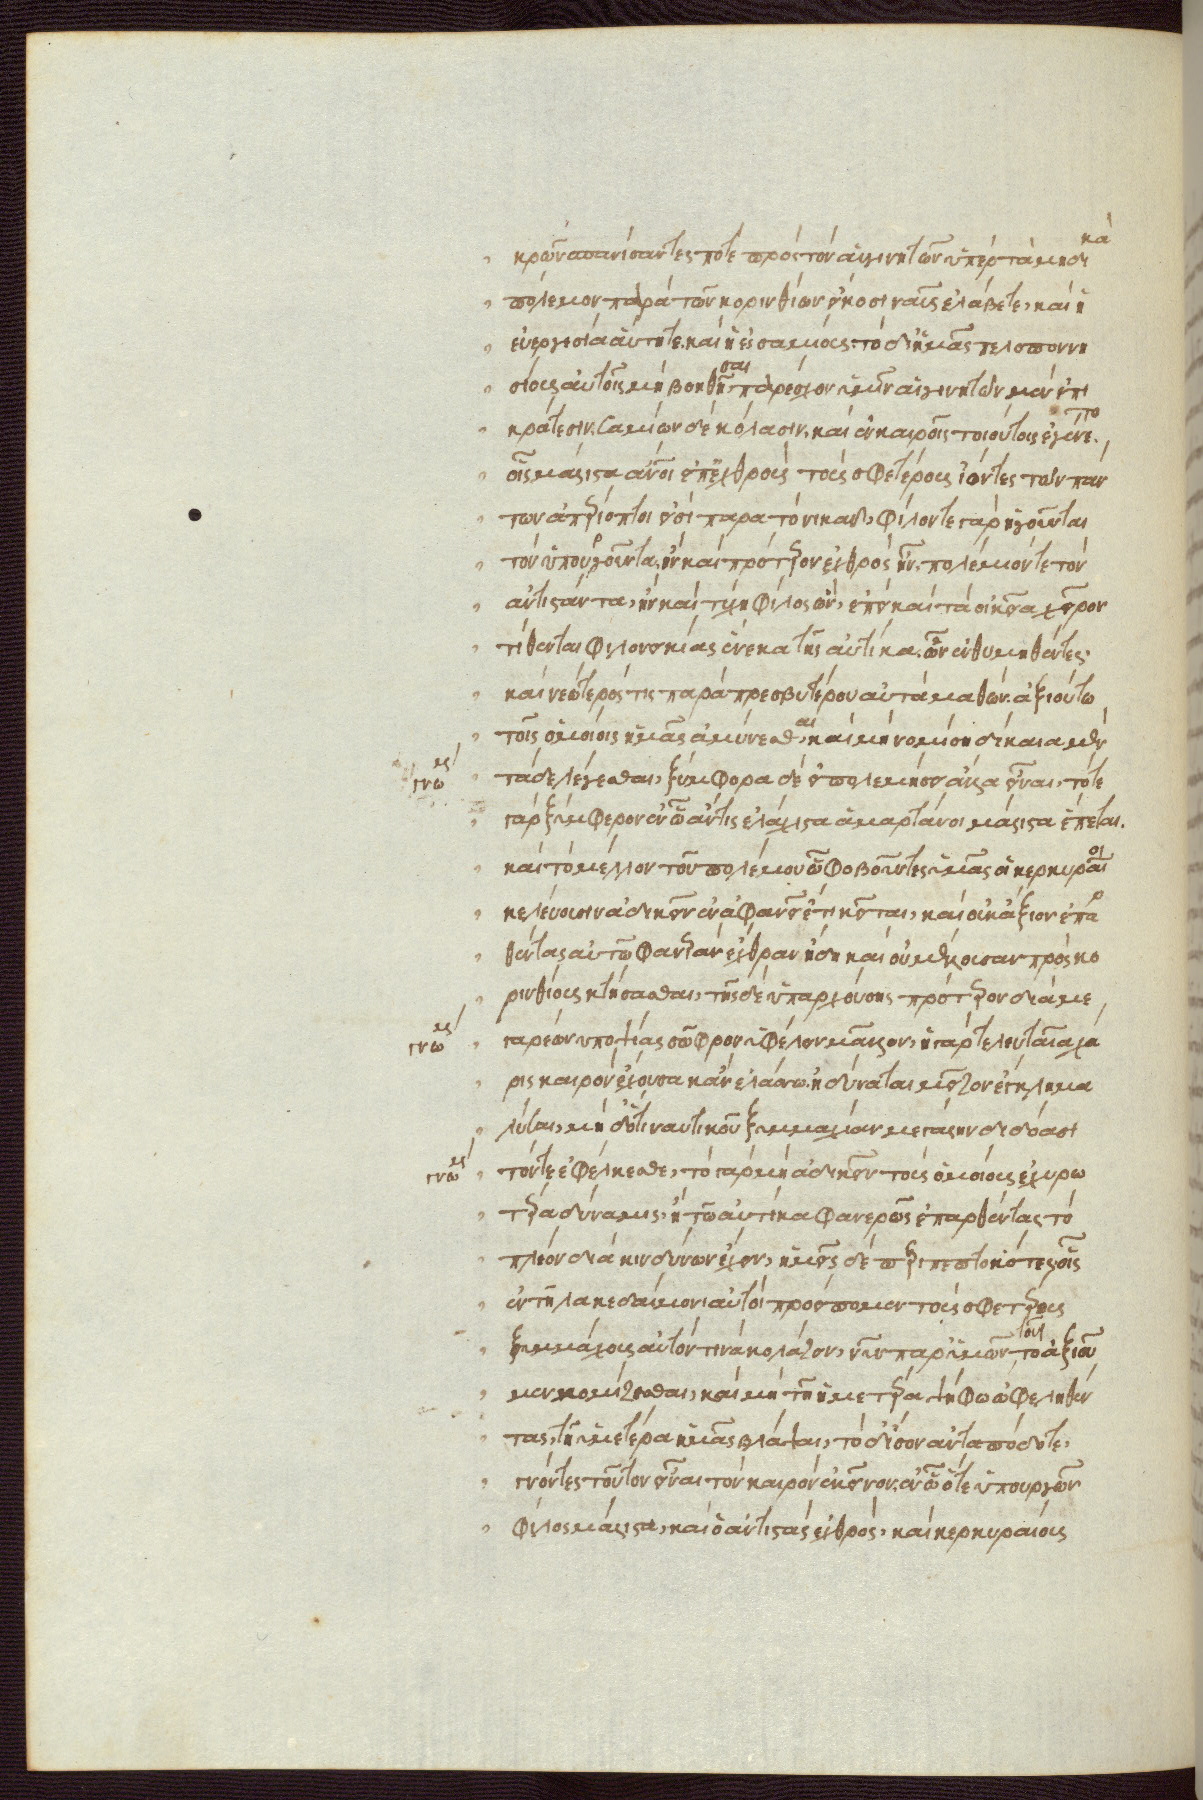 κρῶν σπανίσαντες ποτὲ πρὸς τὸν αἰγινητῶν ὑπὲρ τὰ μηδικὰ
πόλεμον παρὰ τῶν κορινθίων εἴκοσι ναῦς ἐλάβετε, καὶ ἡ
εὐεργεσία αὐτή τε. καὶ ἡ ἐς σαμίους. τὸ δι' ἡμᾶς πελοποννη
σίους αὐτοῖς μὴ βοηθῆσαι, παρέσχον ὑμῖν αἰγινητῶν μὲν ἐπι
κράτεσιν. σαμίων δὲ κόλασιν. καὶ ἐν καιροῖς τοιούτοις ἐγένετο.
οἷς μάλιστα ἄνοι ἐπ' ἐχθροὺς τοὺς σφετέρους ἰόντες τῶν πάν
των ἀπερίοπτοι εἰσὶ παρα τὸ νικᾶν, φίλον τε γὰρ ἡγοῦνται
τὸν ὑπουργοῦντα. ἢν καὶ πρότερον ἐχθρὸς ἦν. πολέμιόν τε τὸν
ἀντιστάντα, ἢν καὶ τύχη φίλος ὤν, ἐπεὶ καὶ τὰ οἰκεῖα χεῖρον
τίθενται φιλονεικίας ἕνεκα τῆς αὐτίκα. ὧν ἐνθυμηθέντες.
καὶ νεώτερός τις παρὰ πρεσβυτέρου αὐτὰ μαθὼν. ἀξιούτω
τοῖς ὁμοίοις ἡμᾶς ἀμύνεσθαι, καὶ μὴ νομίση δίκαια μὲν
γνωμ τάδε λέγεσθαι, ξύμφορα δὲ εἰ πολεμήσει ἄλλα εἶναι, τό τε
γὰρ ξύμφερον ἐν ᾧ ἄν τις ἐλάχιστα ἁμαρτάνοι μάλιστα ἕπεται.
καὶ τὸ μέλλον τοῦ πολέμου ᾧ φοβοῦντες ὑμᾶς οἱ κερκυραῖοι
κελεύουσιν ἀδικεῖν ἐν ἀφανεῖ ἔτι κεῖται, καὶ οὐκ ἄξιον ἐπαρ
θέντας αὐτῶ φανερὰν ἔχθραν ἤδη καὶ οὐ μέλλουσαν πρὸς κο
ρινθίους κτήσασθαι, τῆς δὲ ὑπαρχούσης πρότερον διὰ με
γνωμ γαρέων ὑποψίας σῶφρον ὑφελεῖν μᾶλλον, ἡ γὰρ τελευταῖα χά
ρις καιρὸν ἔχουσα κἂν ἐλάσσω ἦ δύναται μεῖζον ἔγκλημα
λῦσαι, μὴ δ' ὅτι ναυτικοῦ ξυμμαχίαν μεγάλην διδόασι
γνωμ τούτω ἐφέλκεσθε, τὸ γὰρ μὴ ἀδικεῖν τοὺς ὁμοίους ἐχυρω
τέρα δύναμις, ἢ τῶ αὐτίκα φανερῶ ἐπαρθέντας τὸ
πλέον διὰ κινδύνων ἔχειν, ἡμεῖς δὲ περιπεπτωκότες οἷς
ἐν τῆ λακεδαίμονι αὐτοὶ προείπομεν τοὺς σφετέρους
ξυμμάχους αὐτόν τινα κολάζειν, νῦν παρ' ὑμῶν τὸ αὐτὸ ἀξιοῦ
μεν κομίζεσθαι, καὶ μὴ τῆ ἡμετέρα ψήφω ὠφεληθέν
τας, τῆ ὑμετέρα ἡμᾶς βλάψαι, τὸ δ' ἴσον ἀνταπόδοτε,
γνόντες τοῦτον εἶναι τὸν καιρὸν ἐκεῖνον. ἐν ᾧ ὅ τε ὑπουργῶν
φίλος μάλιστα, καὶ ὁ ἀντιστὰς ἐχθρός, καὶ κερκυραίους